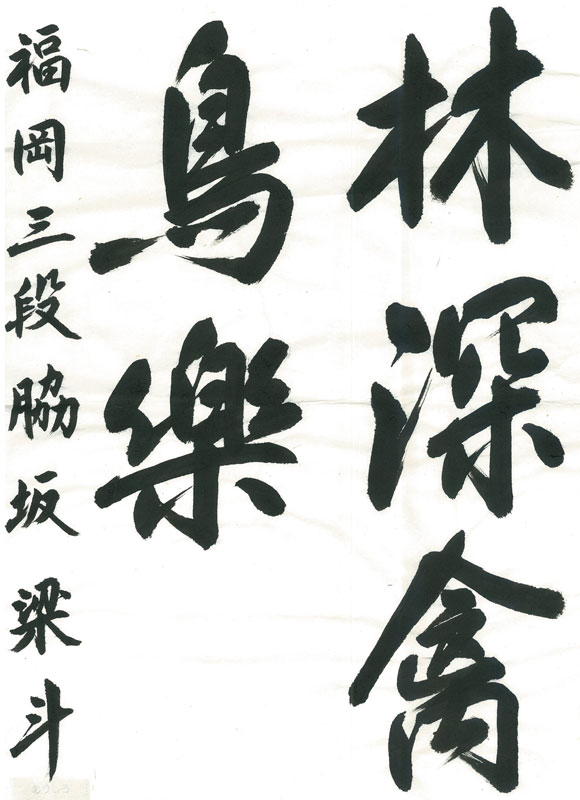 林深禽
鳥樂
福岡三段脇坂梁斗